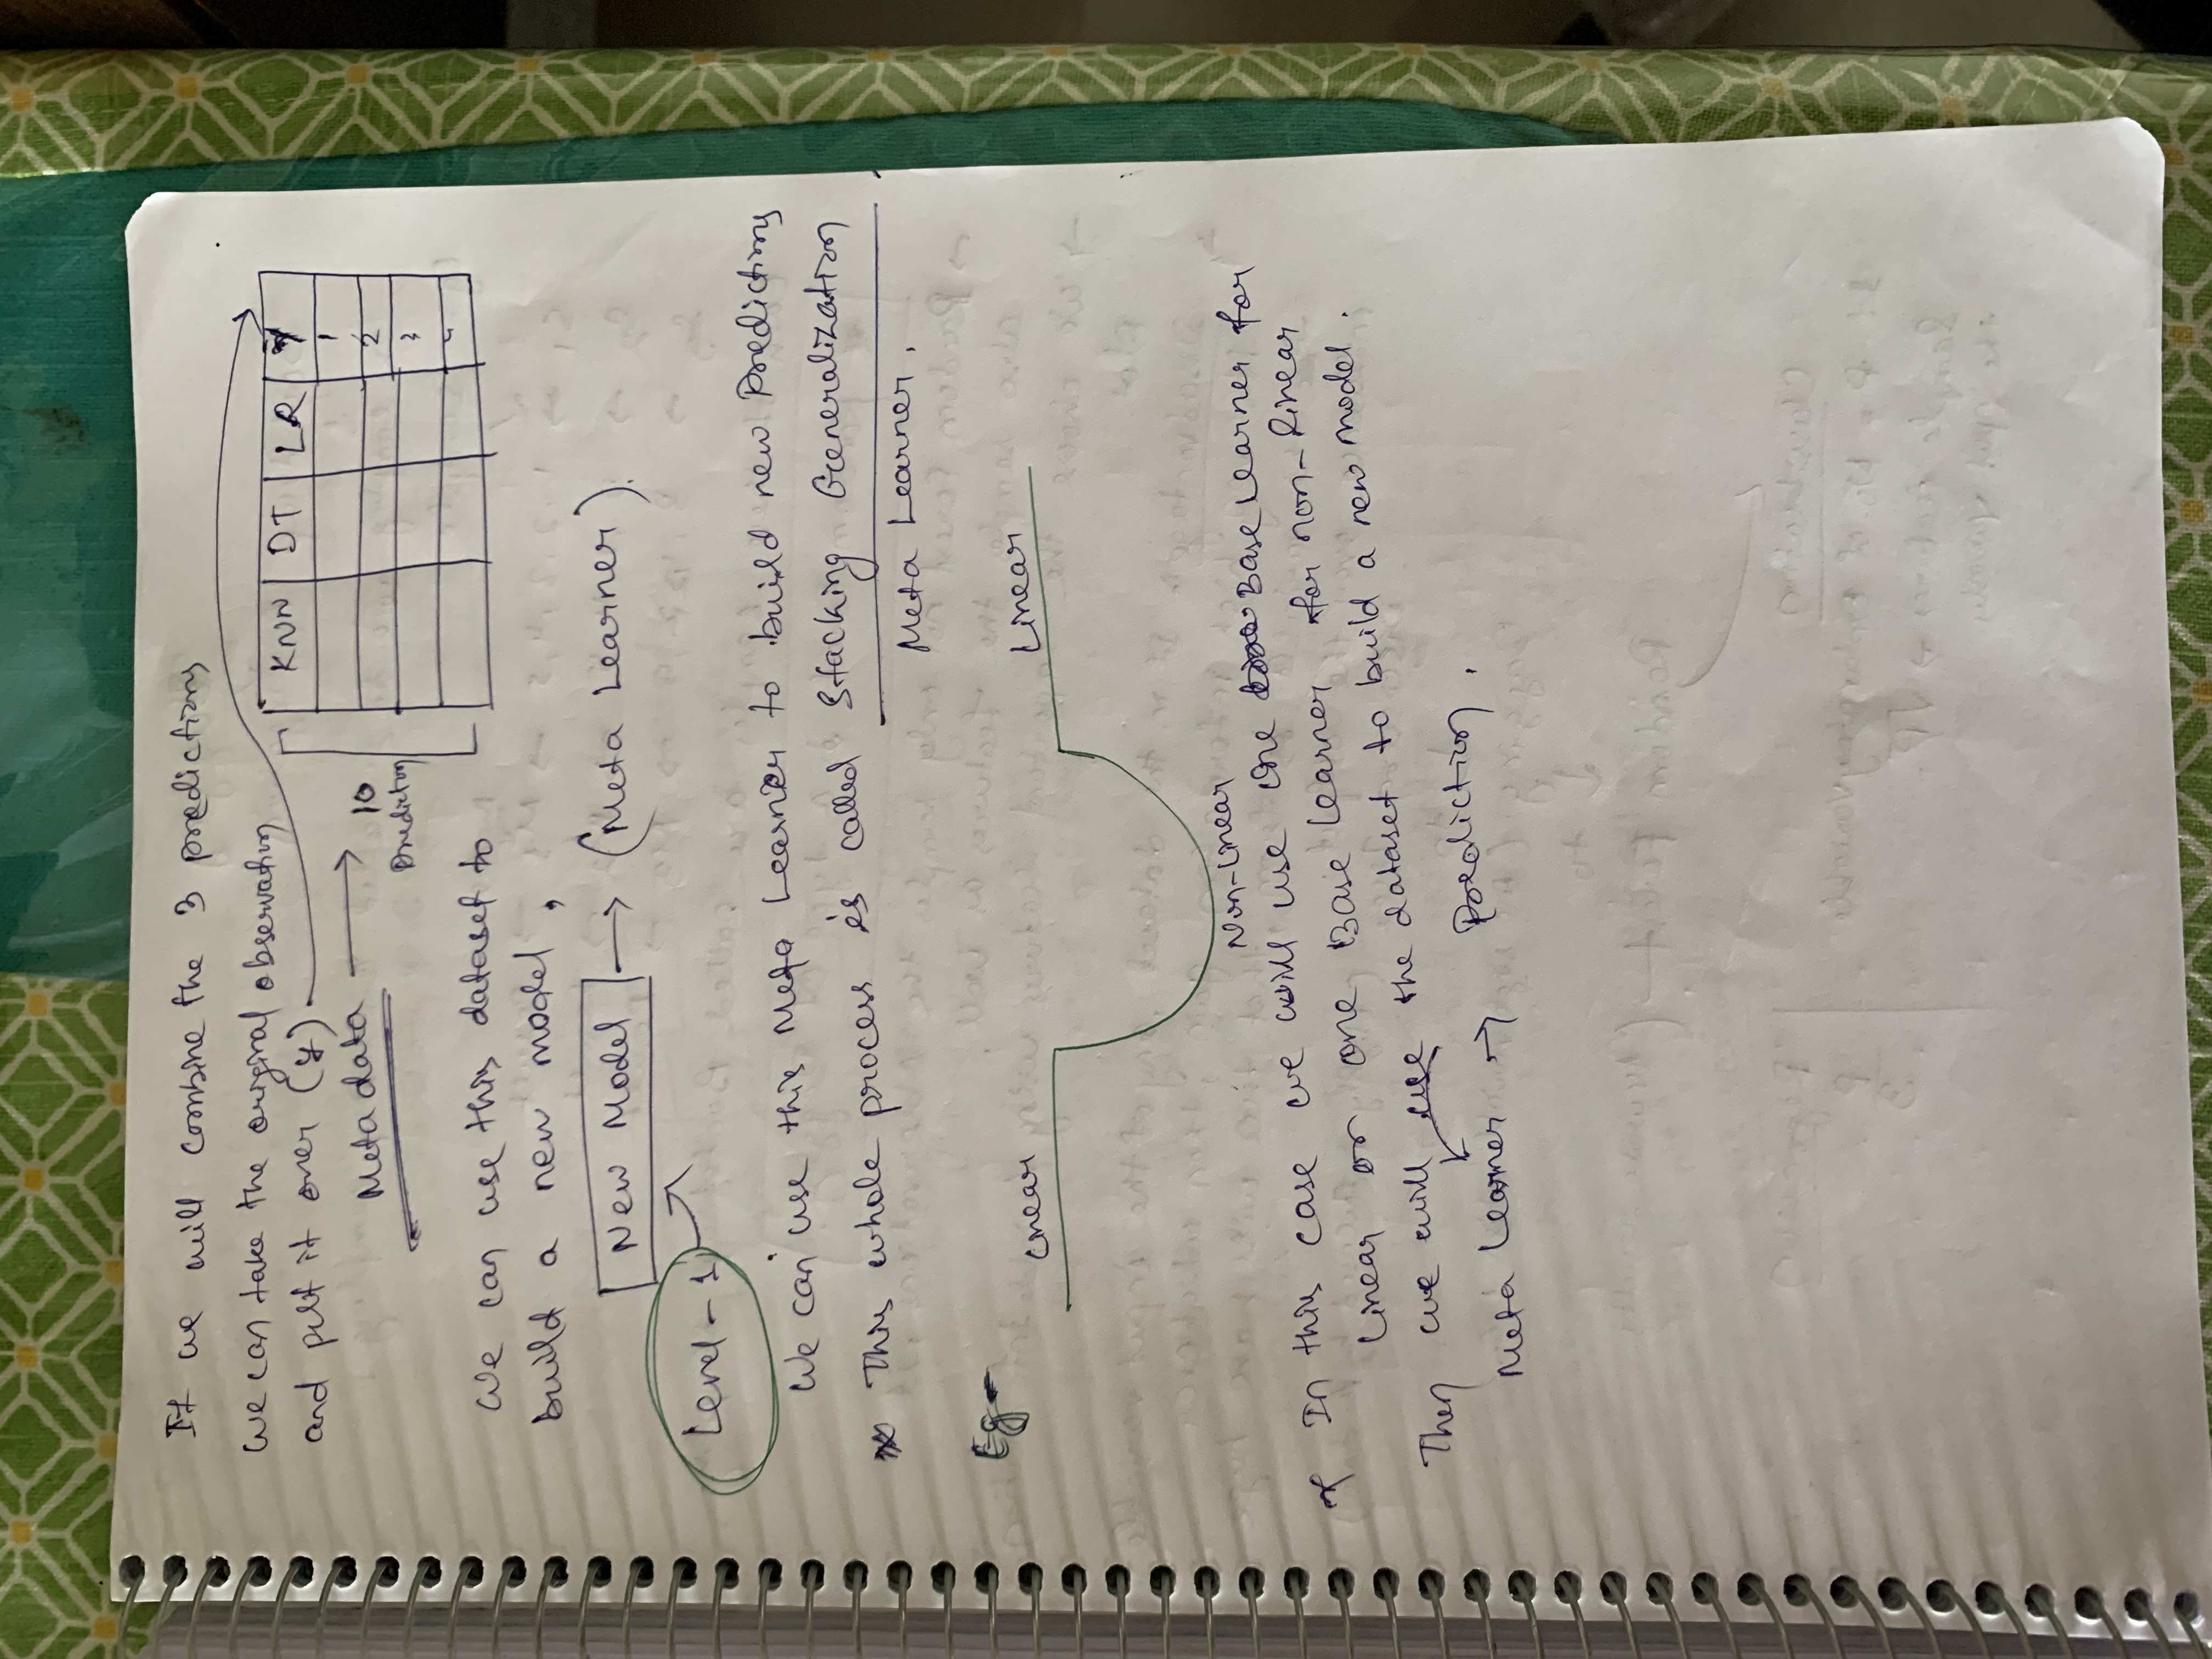 If we will combine the 3 predictions
we can take the original observation
and put it over (y)
Metadata → 10
Prediction
KNN DT LR Y
1
2
3
4
We can use this dataset to
build a new model,
New Model → (Meta Learner).
Level-1
We can use this Meta Learner to build new Predictions
* This whole process is called Stacking Generalization
Meta Learner.
Eg-
Linear Linear
Non-Linear
* In this case we will use one Base Learner for
Linear or one Base Learner for non-linear
Then we will use the dataset to build a new model.
Meta Learner → Prediction.